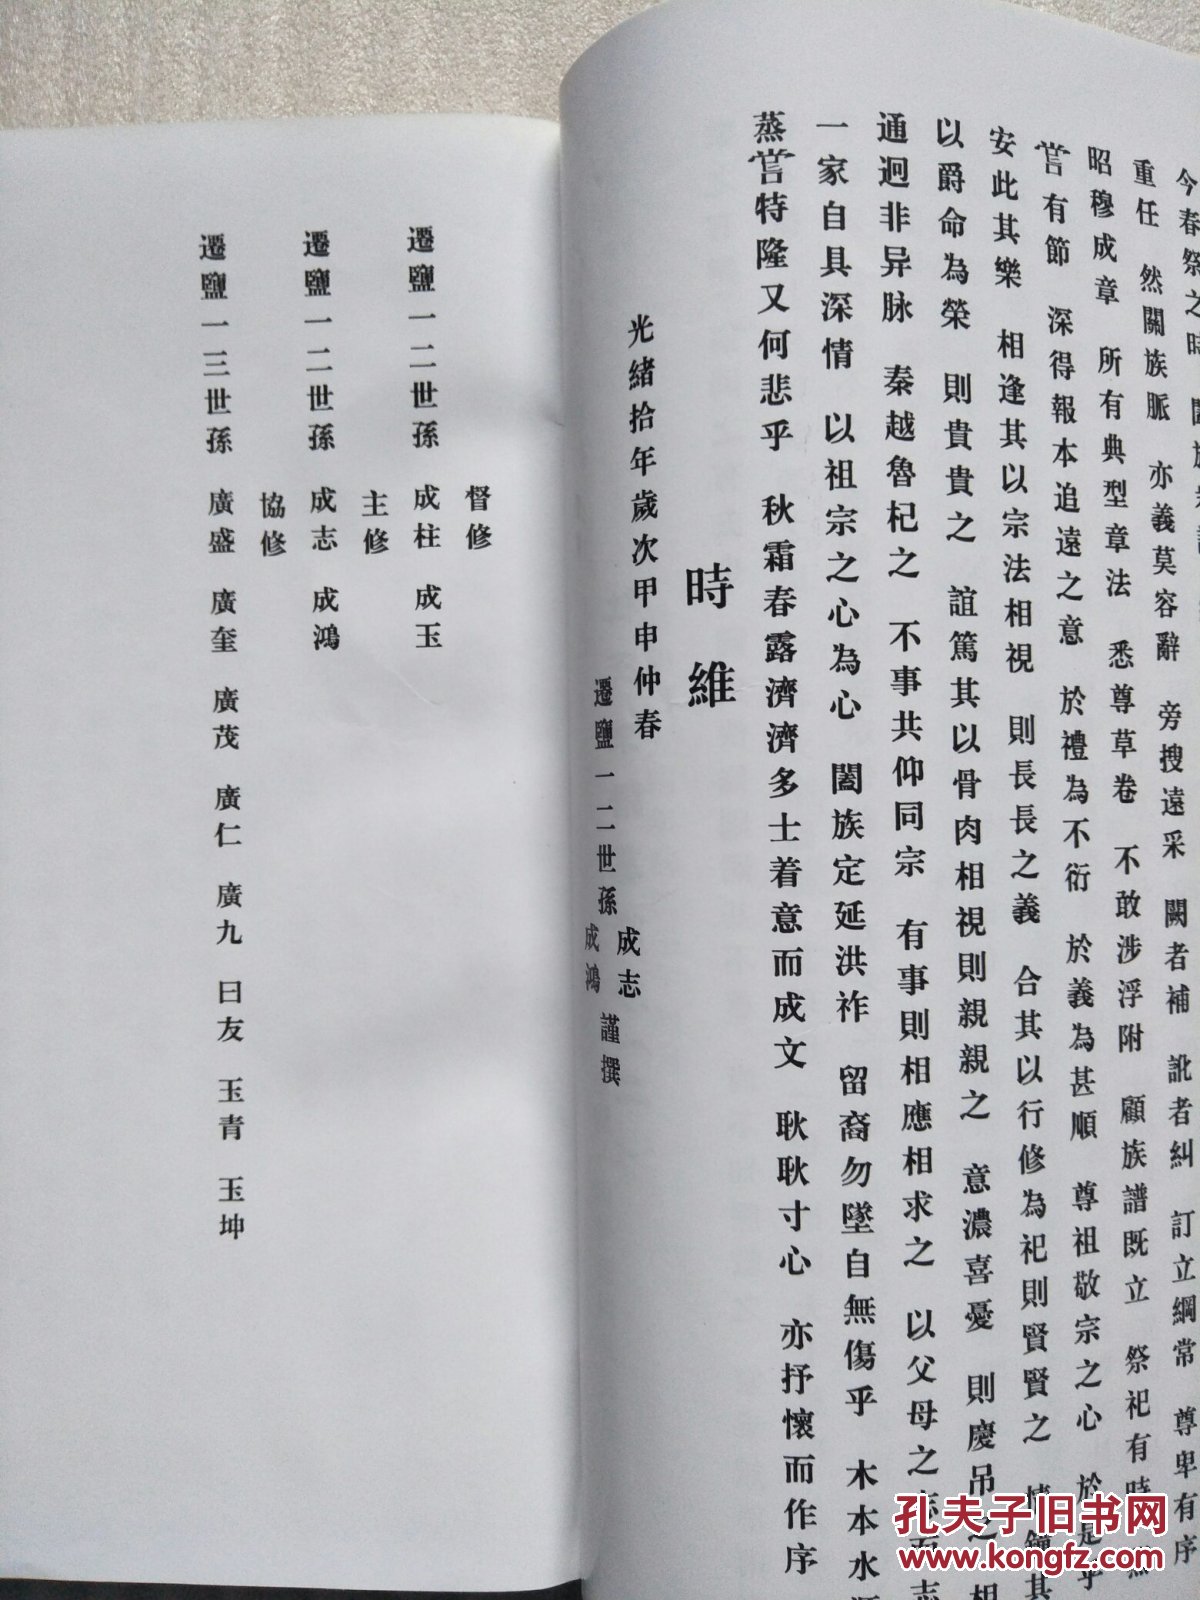 今春祭之時 闔族
重任 然關族脈 亦義莫容辭 旁搜遠采 闕者補 訛者糾 訂立綱常 尊卑有序
昭穆成章 所有典型章法 悉尊草卷 不敢涉浮附 顧族譜既立 祭祀有時
嘗有節 深得報本追遠之意 於禮為不衍 於義為甚順 尊祖敬宗之心 於是乎
安此其樂 相逢其以宗法相視 則長長之義 合其以行修為祀則賢賢之 情鐘其
以爵命為榮 則貴貴之 誼篤其以骨肉相視則親親之 意濃喜憂 則慶吊之 相
通迥非异脉 秦越魯杞之 不事共仰同宗 有事則相應相求之 以父母之志而志
一家自具深情 以祖宗之心為心 闔族定延洪祚 留裔勿墜自無傷乎 木本水源
蒸嘗特隆又何悲乎 秋霜春露濟濟多士着意而成文 耿耿寸心 亦抒懷而作序
時維
光緒拾年歲次甲申仲春
遷鹽一二世孫 成志 成鴻 謹撰
督修
遷鹽一二世孫 成柱 成玉
主修
遷鹽一二世孫 成志 成鴻
協修
遷鹽一三世孫 廣盛 廣奎 廣茂 廣仁 廣九 曰友 玉青 玉坤
孔夫子旧书网
www.kongfz.com